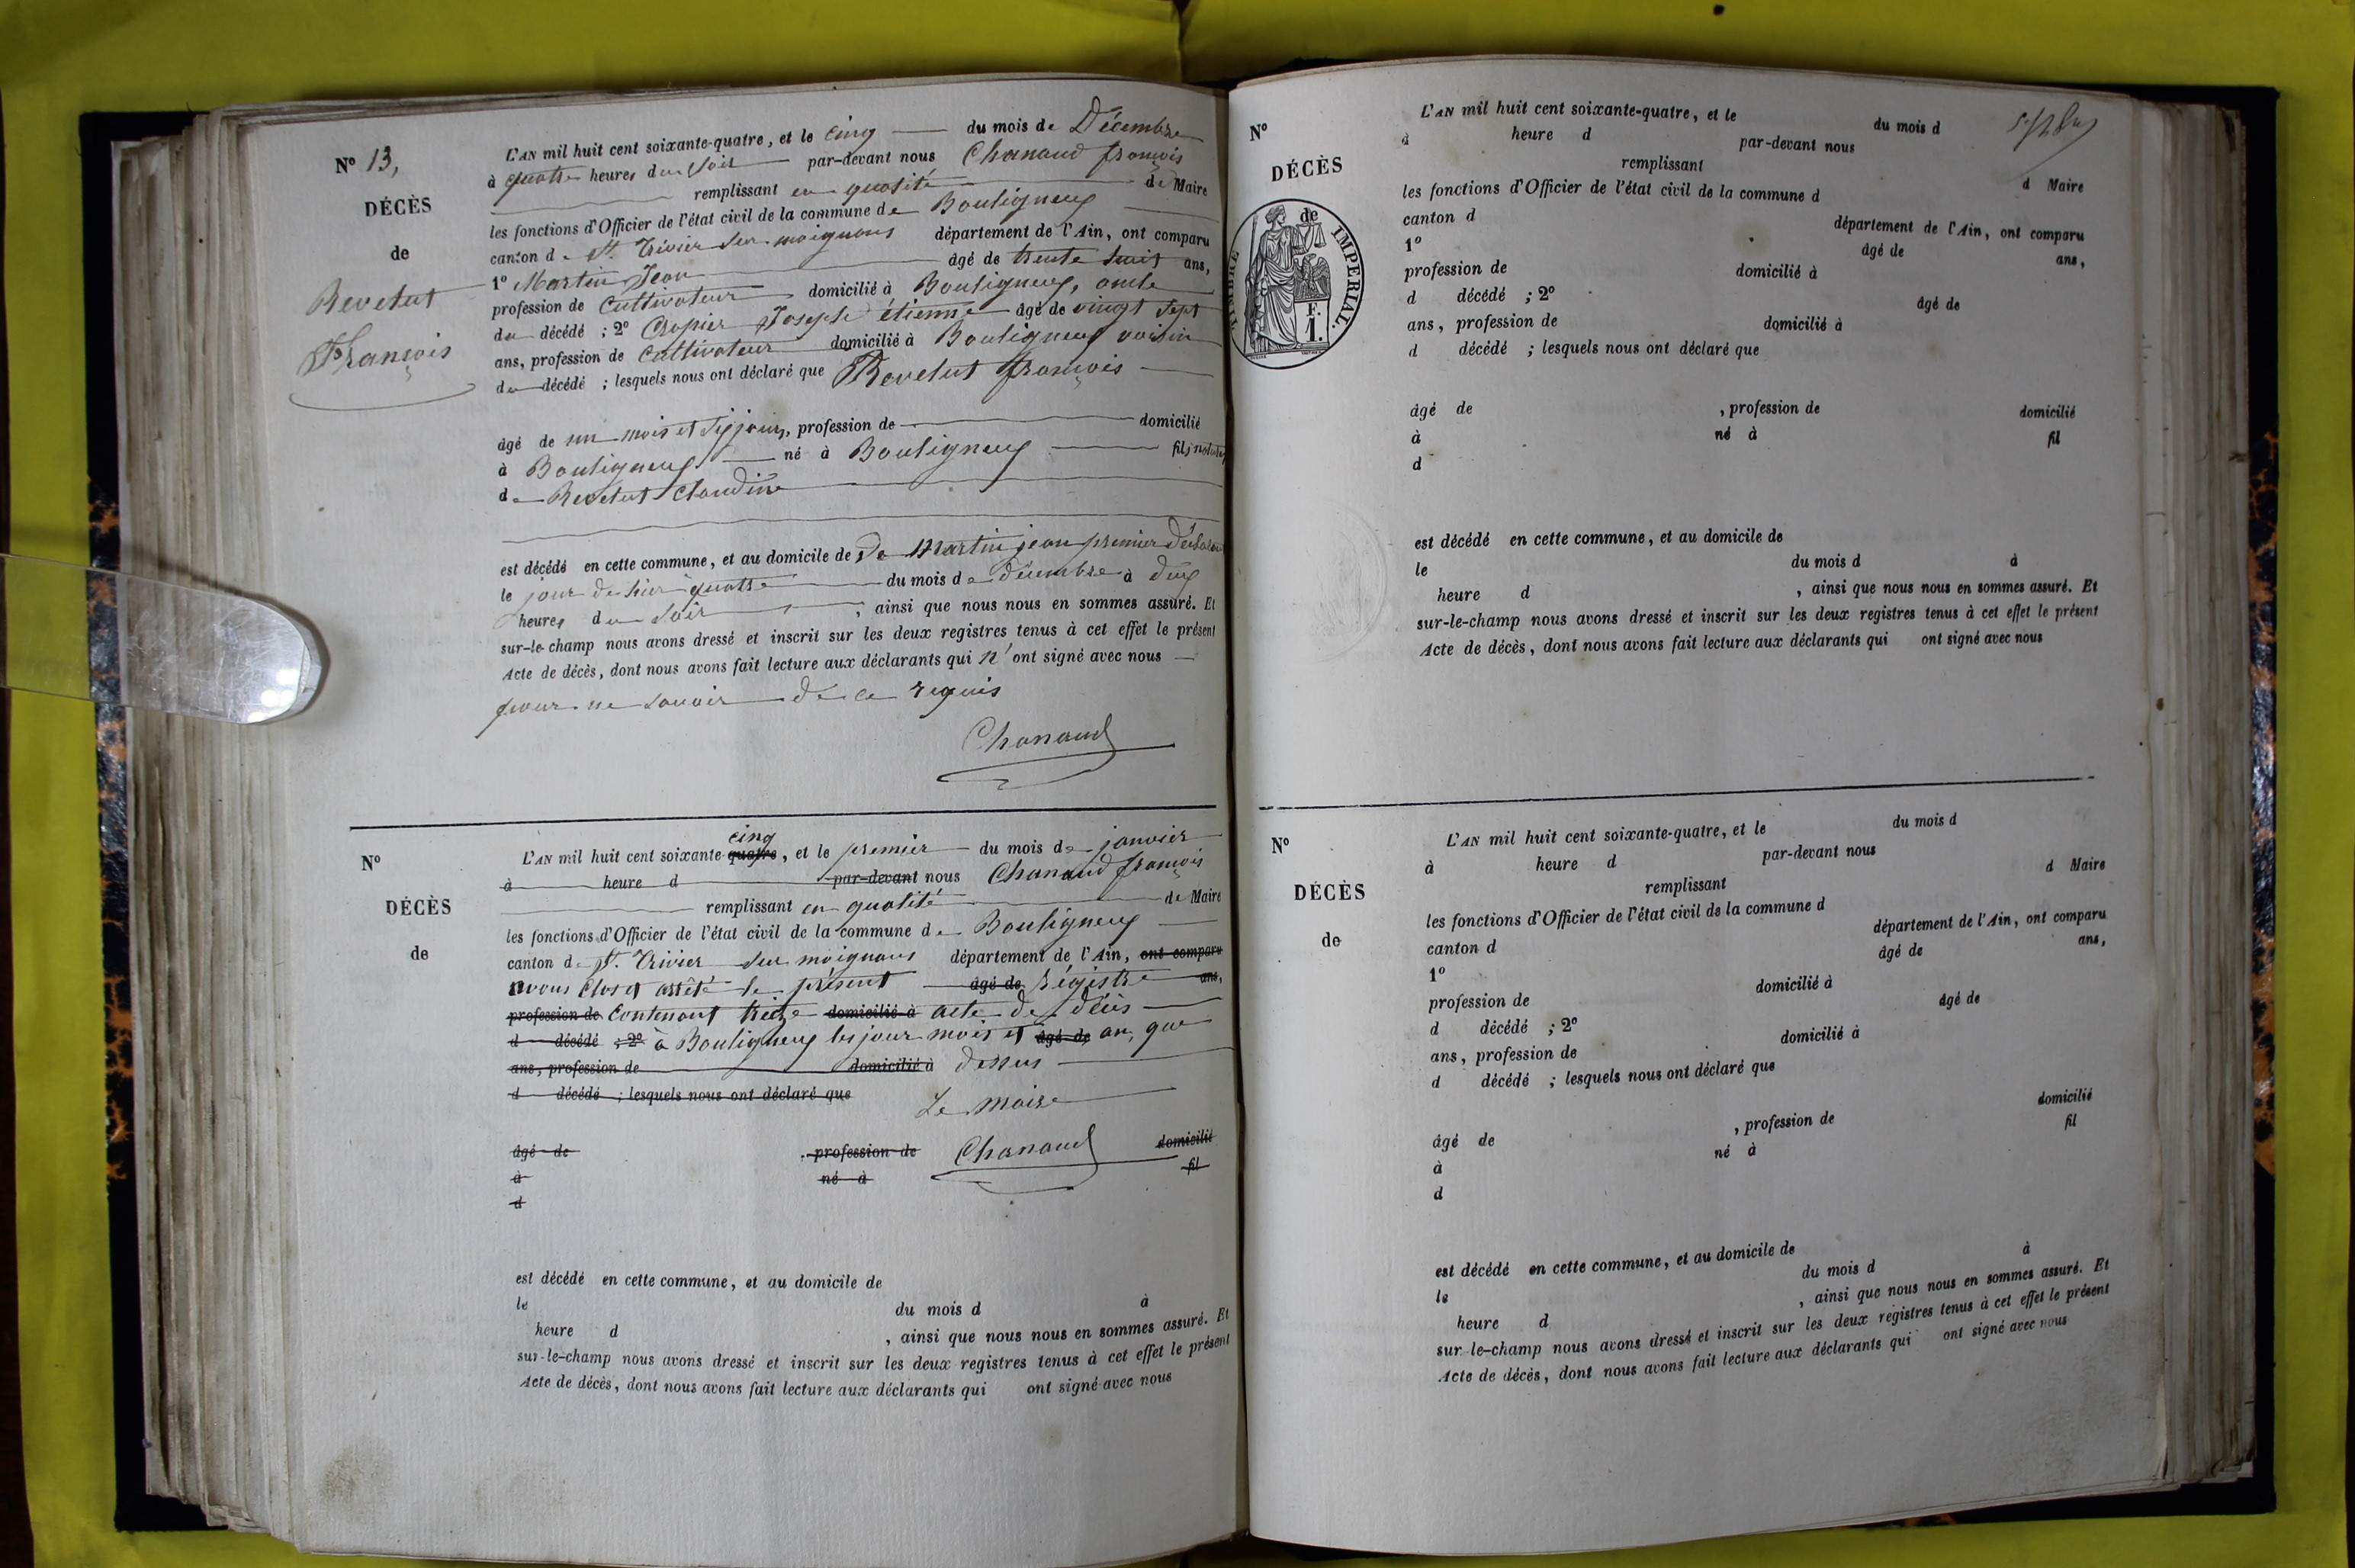 N° 13,
DÉCÈS
de
Revetut
François
L'AN mil huit cent soixante-quatre, et le cinq du mois de Décembre
à quatre heures du soir par-devant nous Chanaud françois
remplissant en qualité de Maire
les fonctions d'Officier de l'état civil de la commune de Bouligneux
canton de St. Trivier sur moignans département de l'Ain, ont comparu
1° Martin Jean âgé de trente huit ans,
profession de Cultivateur domicilié à Bouligneux, oncle
du décédé ; 2° Joseph étienne âgé de vingt sept
ans, profession de Cultivateur domicilié à Bouligneux voisin
du décédé ; lesquels nous ont déclaré que Revetut françois
âgé de un mois et six jours, profession de domicilié
à Bouligneux né à Bouligneux fils naturel
de Revetut Claudine
est décédé en cette commune, et au domicile de de Martin jean premier déclarant
le jour de hier quatre du mois de décembre à deux
heures du soir , ainsi que nous nous en sommes assuré. Et
sur-le-champ nous avons dressé et inscrit sur les deux registres tenus à cet effet le présent
Acte de décès, dont nous avons fait lecture aux déclarants qui n'ont signé avec nous
pour ne savoir de ce requis
Chanaud
N°
DÉCÈS
de
cinq
L'AN mil huit cent soixante-quatre, et le premier du mois de janvier
à heure d par-devant nous Chanaud françois
remplissant en qualité de Maire
les fonctions d'Officier de l'état civil de la commune de Bouligneux
canton de St. Trivier sur moignans département de l'Ain, ont comparu
avons Clos et arrêté le présent âgé de régistre ans,
profession de Contenant treize domicilié à acte de décès
d décédé ; 2° à Bouligneux les jour mois et âgé de an, que
ans, profession de domicilié à dessus
d décédé ; lesquels nous ont déclaré que
Le maire
âgé de , profession de Chanaud domicilié
à né à fil
d
est décédé en cette commune, et au domicile de
le du mois d à
heure d , ainsi que nous nous en sommes assuré. Et
sur-le-champ nous avons dressé et inscrit sur les deux registres tenus à cet effet le présent
Acte de décès, dont nous avons fait lecture aux déclarants qui ont signé avec nous
N°
DÉCÈS
de
TIMBRE IMPERIAL.
F.
1.
L'AN mil huit cent soixante-quatre, et le du mois d
à heure d par-devant nous
remplissant d Maire
les fonctions d'Officier de l'état civil de la commune d
canton d département de l'Ain, ont comparu
1° âgé de ans,
profession de domicilié à
d décédé ; 2° âgé de
ans, profession de domicilié à
d décédé ; lesquels nous ont déclaré que
âgé de , profession de domicilié
à né à fil
d
est décédé en cette commune, et au domicile de
le du mois d à
heure d , ainsi que nous nous en sommes assuré. Et
sur-le-champ nous avons dressé et inscrit sur les deux registres tenus à cet effet le présent
Acte de décès, dont nous avons fait lecture aux déclarants qui ont signé avec nous
N°
DÉCÈS
de
L'AN mil huit cent soixante-quatre, et le du mois d
à heure d par-devant nous
remplissant d Maire
les fonctions d'Officier de l'état civil de la commune d
canton d département de l'Ain, ont comparu
1° âgé de ans,
profession de domicilié à
d décédé ; 2° âgé de
ans, profession de domicilié à
d décédé ; lesquels nous ont déclaré que
âgé de , profession de domicilié
à né à fil
d
est décédé en cette commune, et au domicile de
le du mois d à
heure d , ainsi que nous nous en sommes assuré. Et
sur-le-champ nous avons dressé et inscrit sur les deux registres tenus à cet effet le présent
Acte de décès, dont nous avons fait lecture aux déclarants qui ont signé avec nous